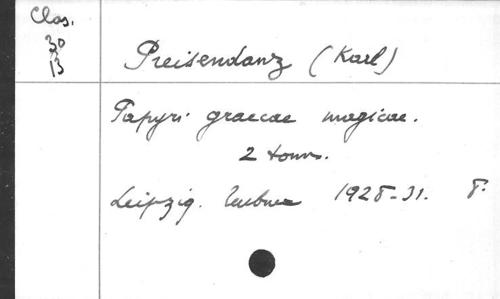 Clas.
30
13
Preisendanz (Karl)
Papyri graecae magicae.
2 toms.
Leipzig. Teubner 1928-31. 8.